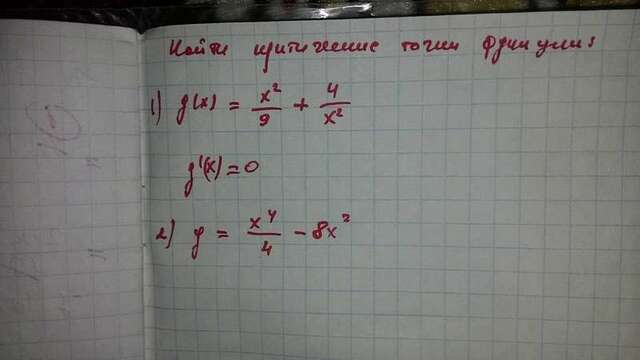 Найти критические точки функции:
1) g(x) = x²/9 + 4/x²
g'(x) = 0
2) y = x⁴/4 - 8x²